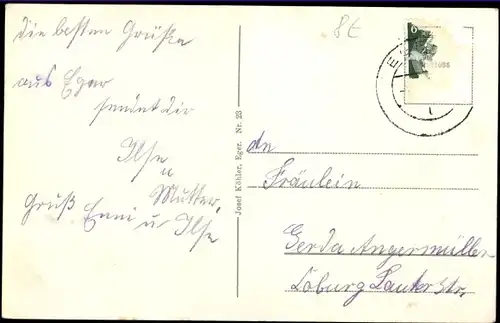 die besten Grüße
aus Eger
sendet dir
Ilse
u
Mutter,
Gruß Enni u Ilse
8£
6
Josef Köhler, Eger. Nr. 23
An
Fräulein
Gerda Angermüller
Coburg Lauter Str.